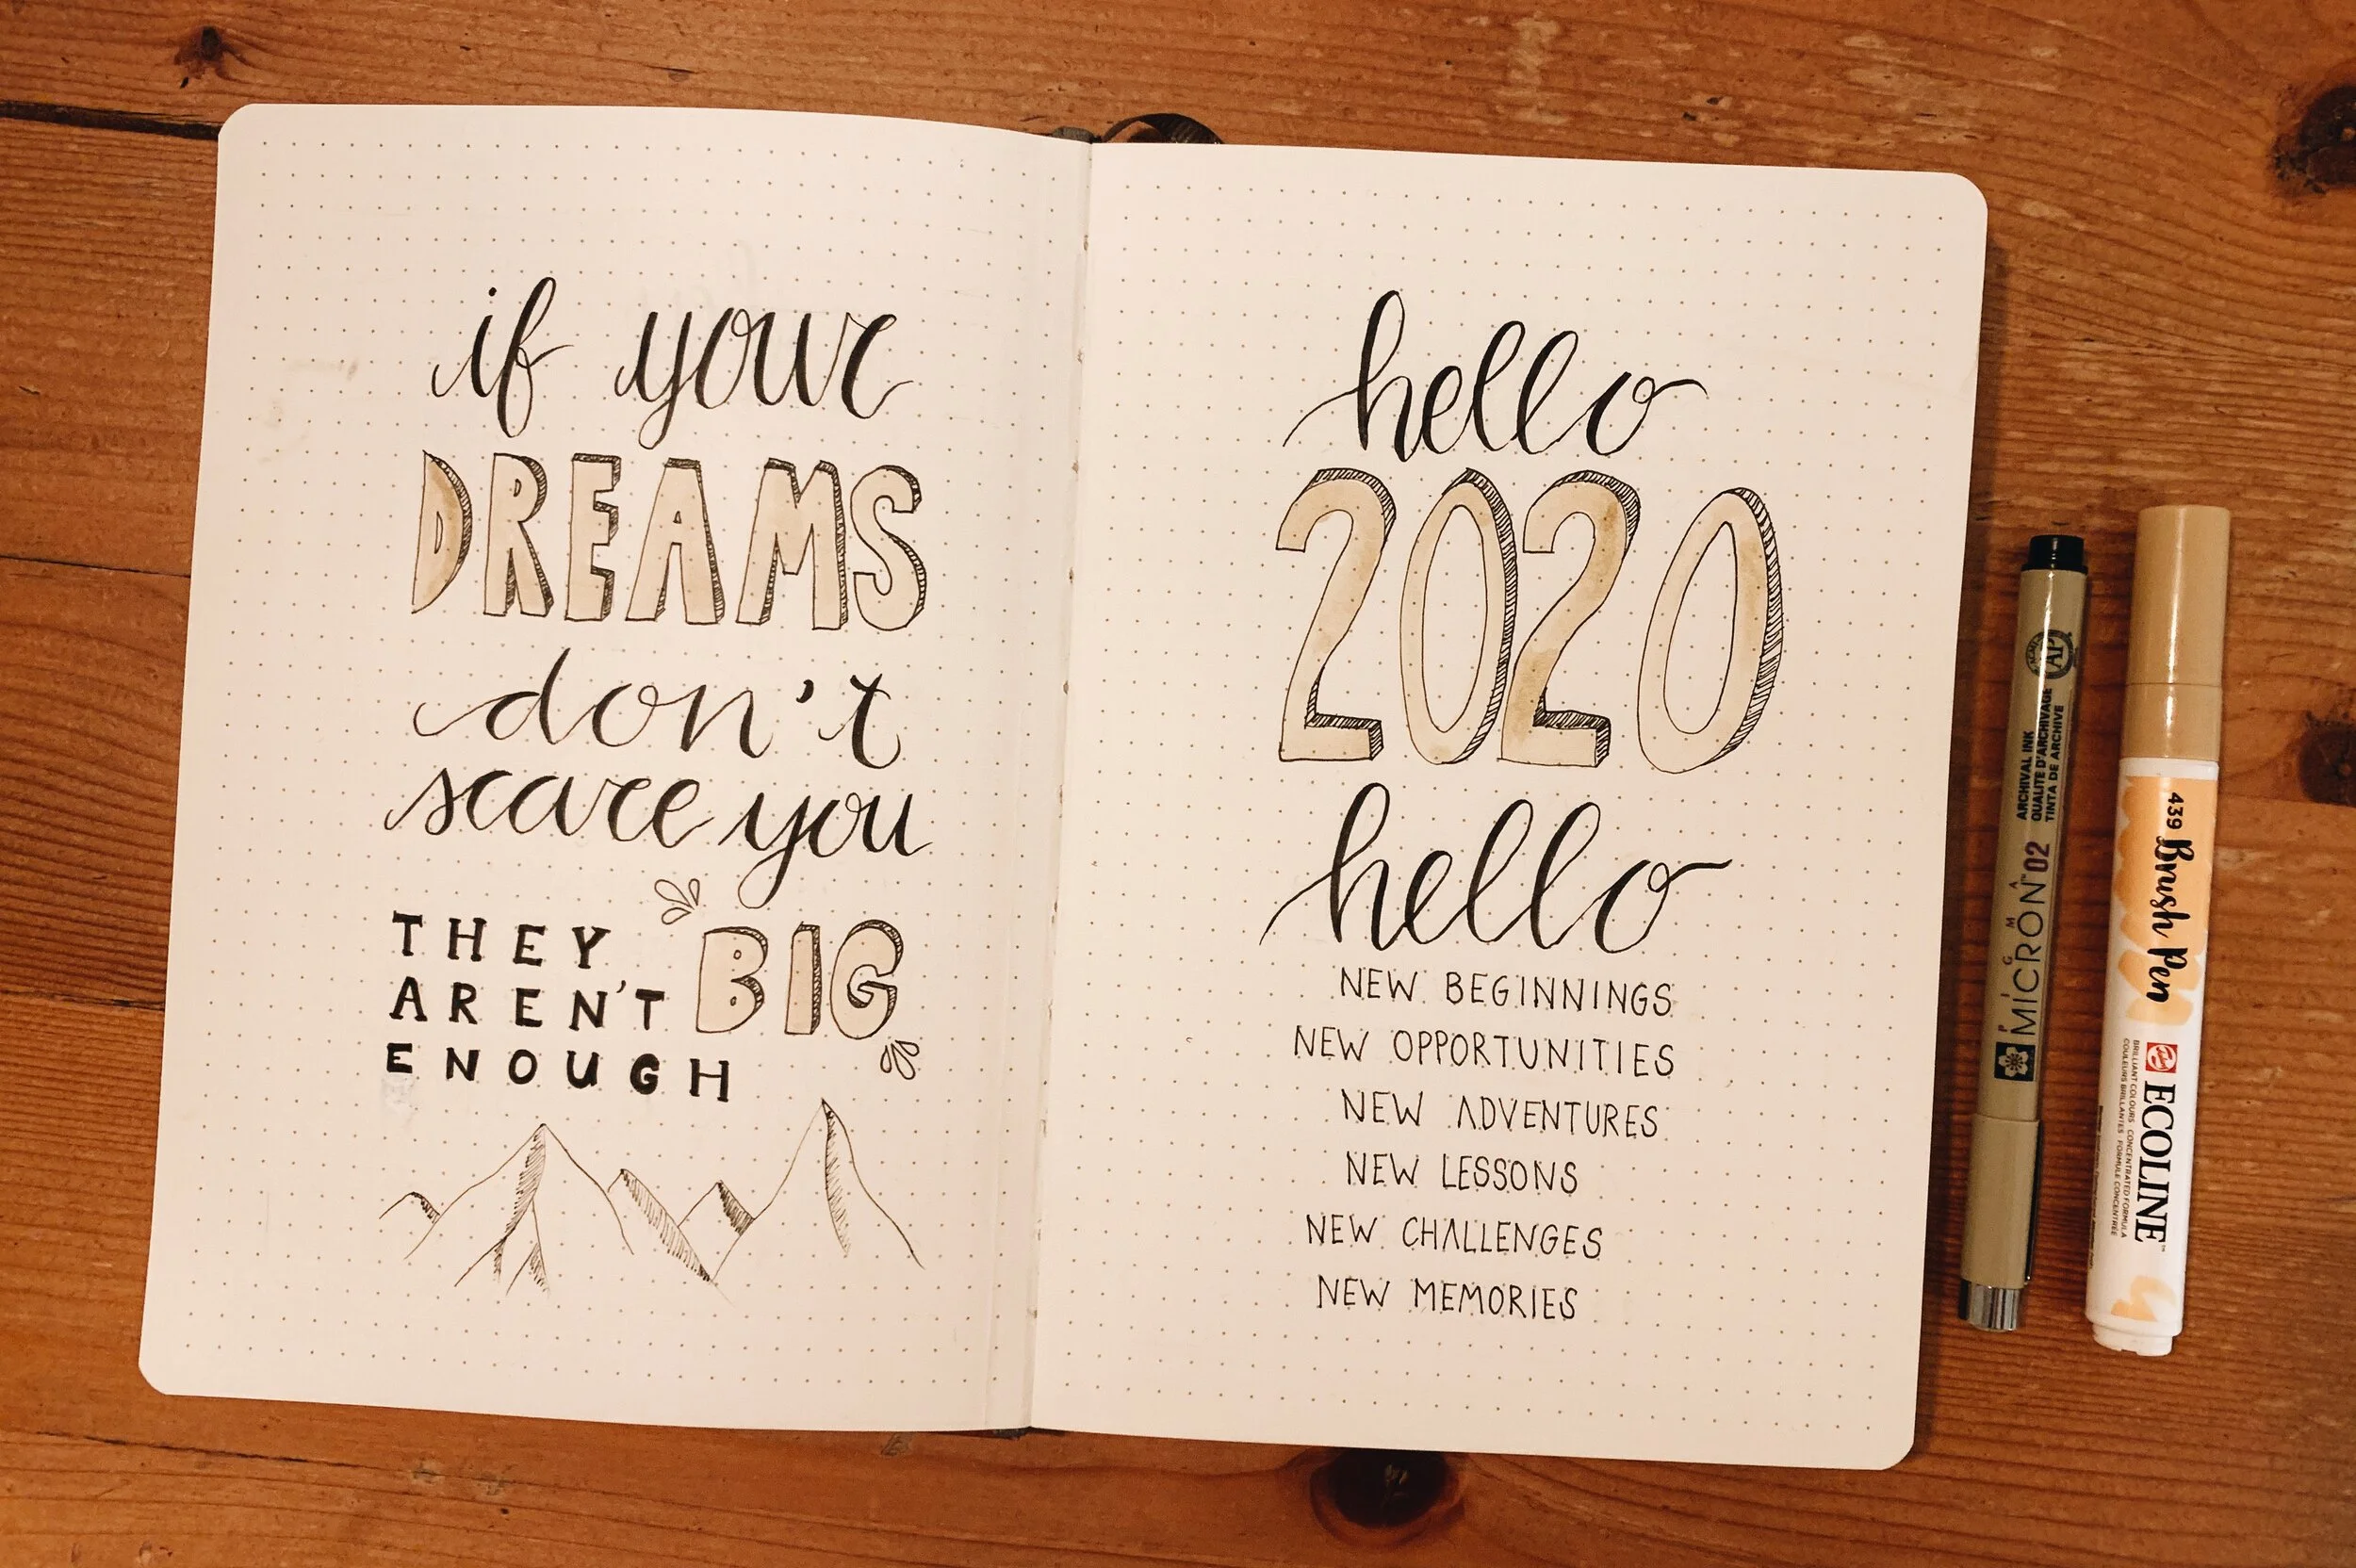 if your
DREAMS
don't
scare you
THEY
AREN'T BIG
ENOUGH
hello
2020
hello
NEW BEGINNINGS
NEW OPPORTUNITIES
NEW ADVENTURES
NEW LESSONS
NEW CHALLENGES
NEW MEMORIES
PIGMA
MICRON 02
ARCHIVAL INK
QUALITE D'ARCHIVAGE
TINTA DE ARCHIVE
AP
439 Brush Pen
ECOLINE
BRILLIANT COLOURS CONCENTRATED FORMULA
COULEURS BRILLANTES FORMULE CONCENTRÉE